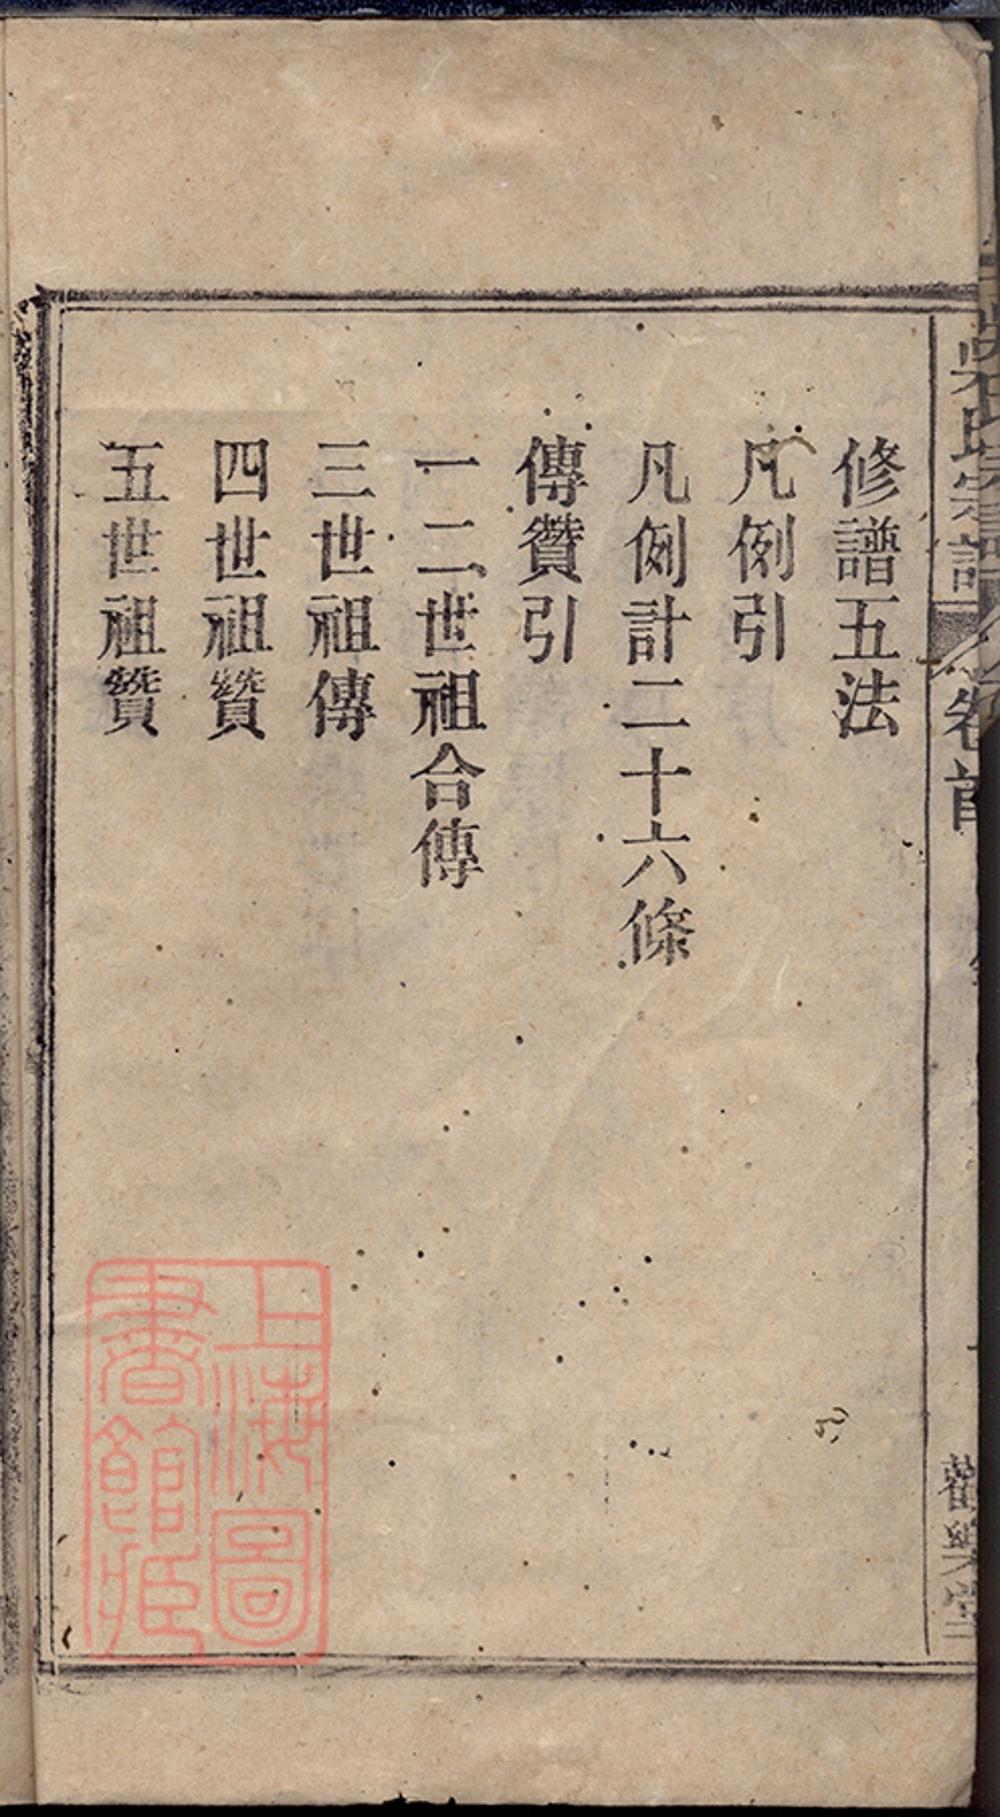 吳氏宗譜
卷首
修譜五法
凡例引
凡例計二十六條
傳贊引
一二世祖合傳
三世祖傳
四世祖贊
五世祖贊
上海圖
書館藏